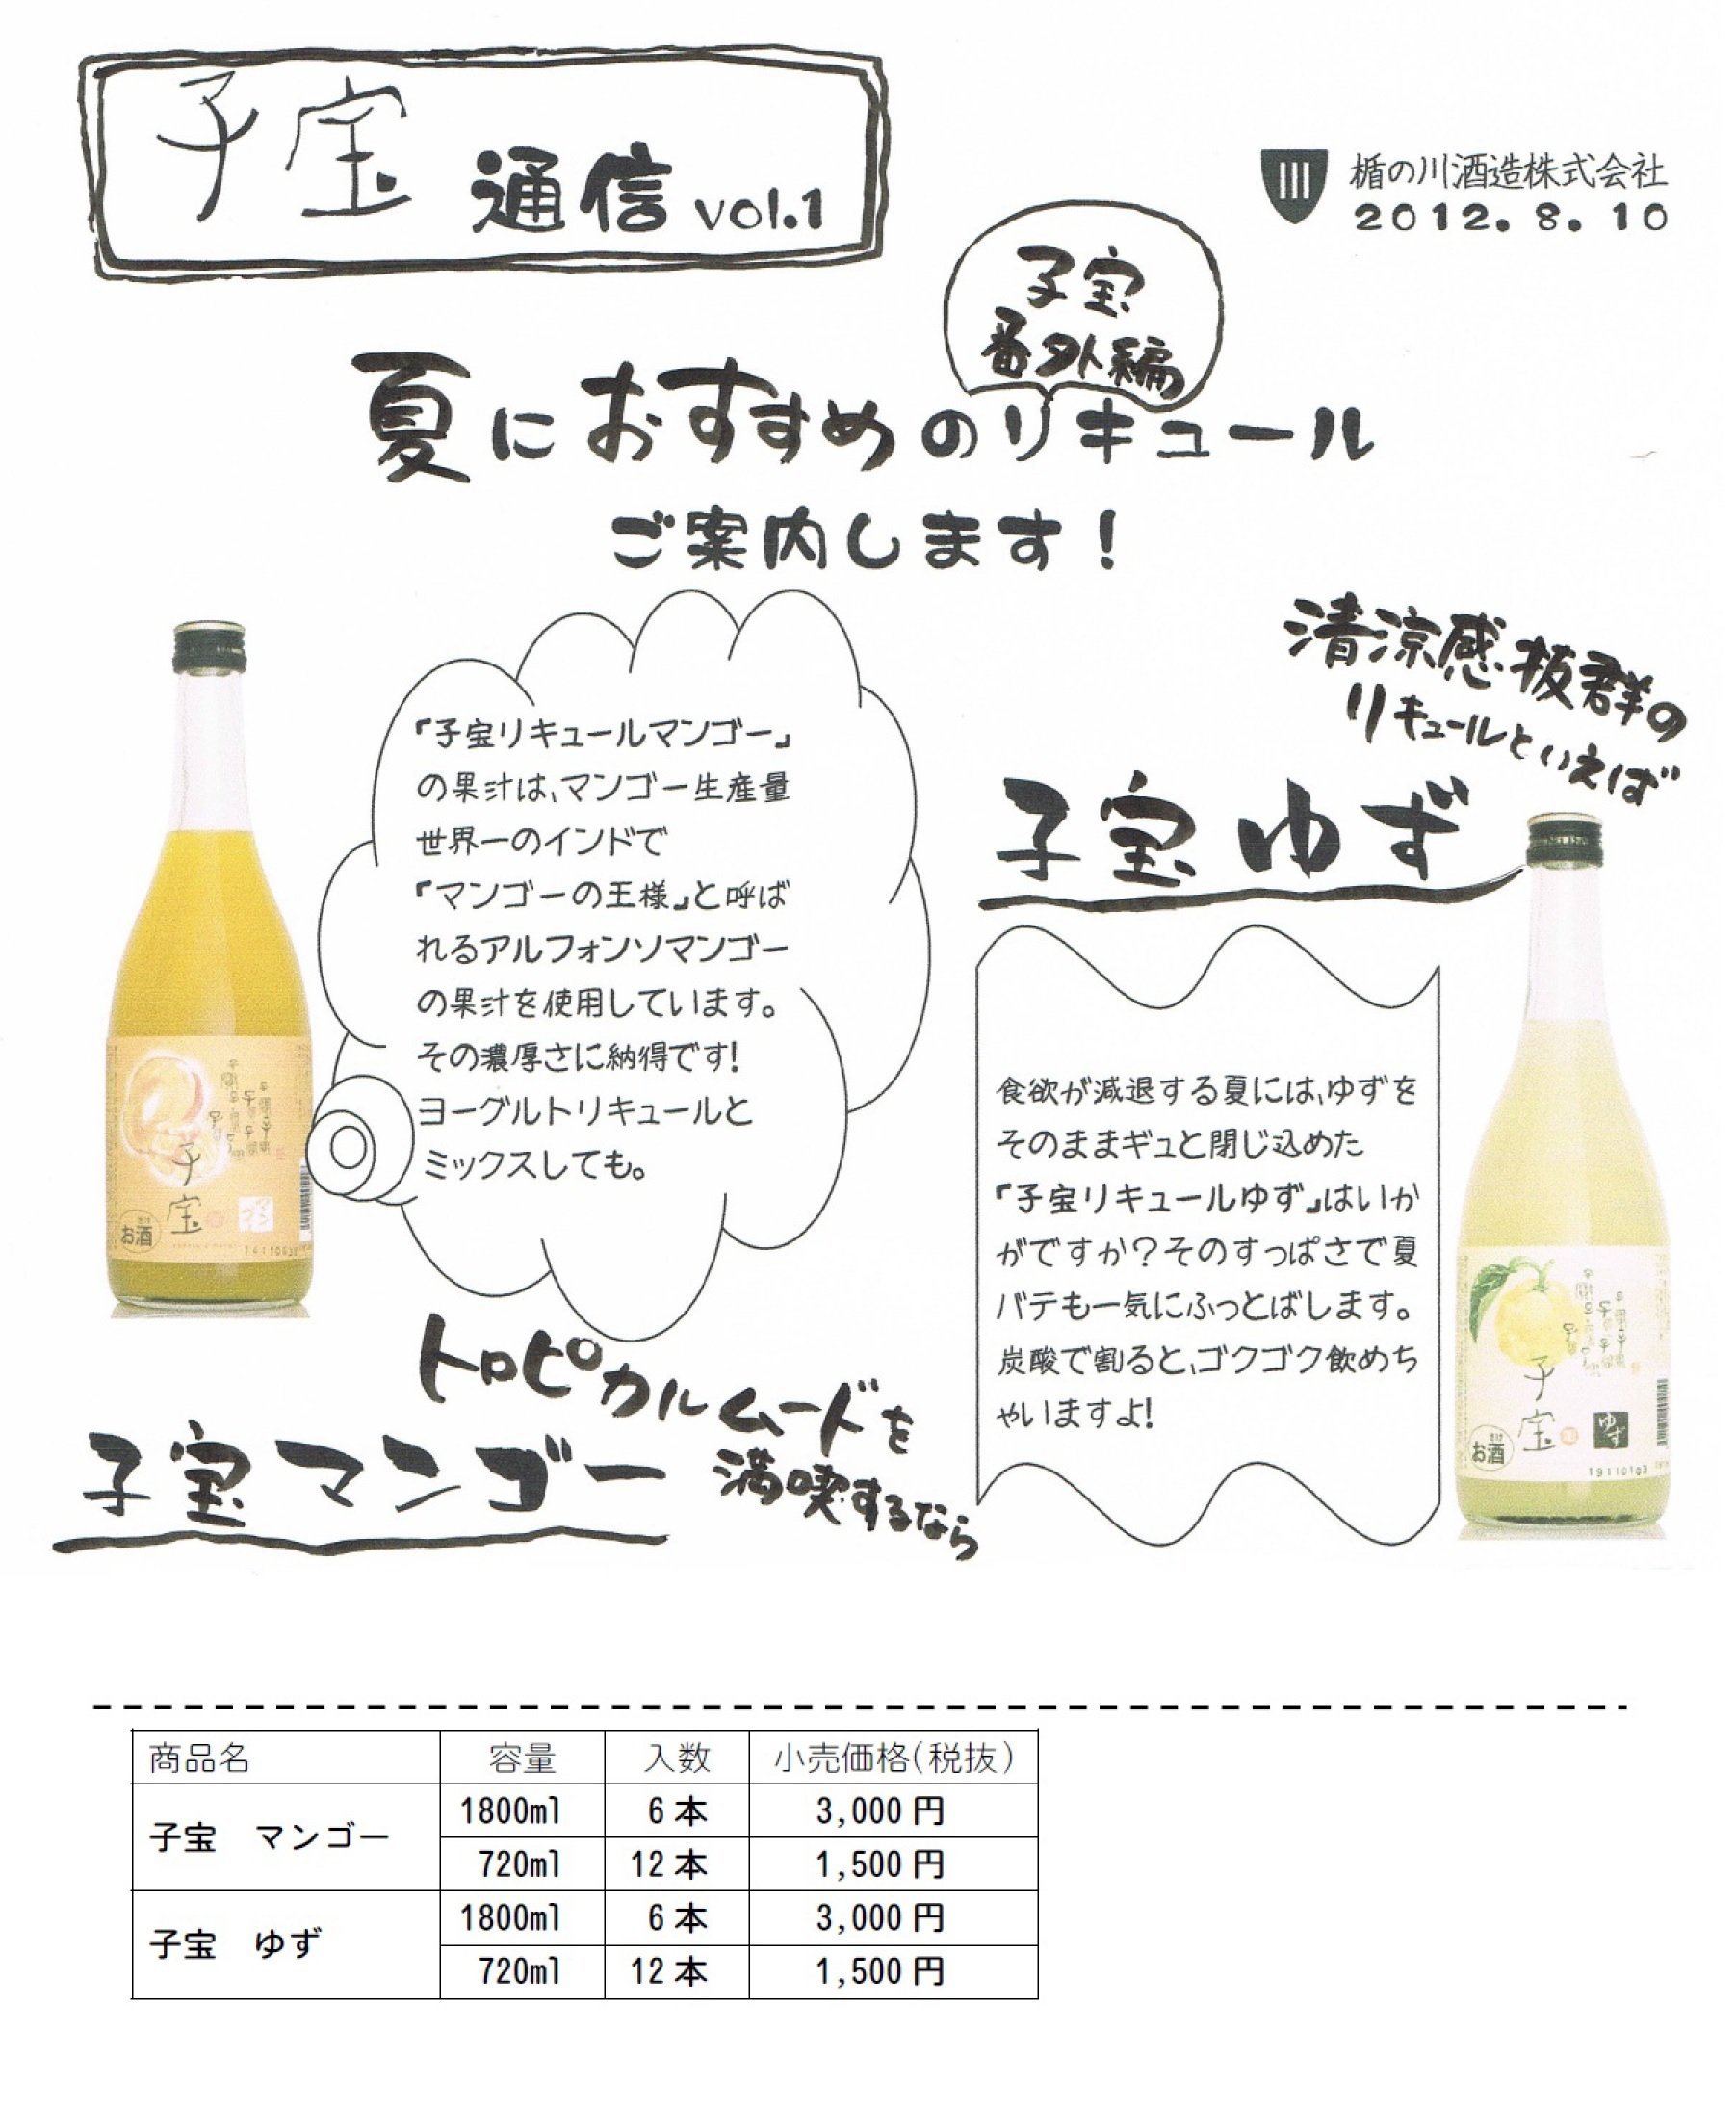 子宝 通信 vol.1
楯の川酒造株式会社
2012.8.10
子宝
番外編
夏におすすめのリキュール
ご案内します！
『子宝リキュールマンゴー』
の果汁は、マンゴー生産量
世界一のインドで
『マンゴーの王様』と呼ば
れるアルフォンソマンゴー
の果汁を使用しています。
その濃厚さに納得です!
ヨーグルトリキュールと
ミックスしても。
トロピカルムードを
満喫するなら
子宝マンゴー
清涼感抜群の
リキュールといえば
子宝ゆず
食欲が減退する夏には、ゆずを
そのままギュと閉じ込めた
『子宝リキュールゆず』はいか
がですか？そのすっぱさで夏
バテも一気にふっとばします。
炭酸で割ると、ゴクゴク飲めち
ゃいますよ!
子宝
お酒
子宝
ゆず
お酒
19110103
商品名 容量 入数 小売価格(税抜)
子宝　マンゴー 1800ml 6本 3,000円
720ml 12本 1,500円
子宝　ゆず 1800ml 6本 3,000円
720ml 12本 1,500円